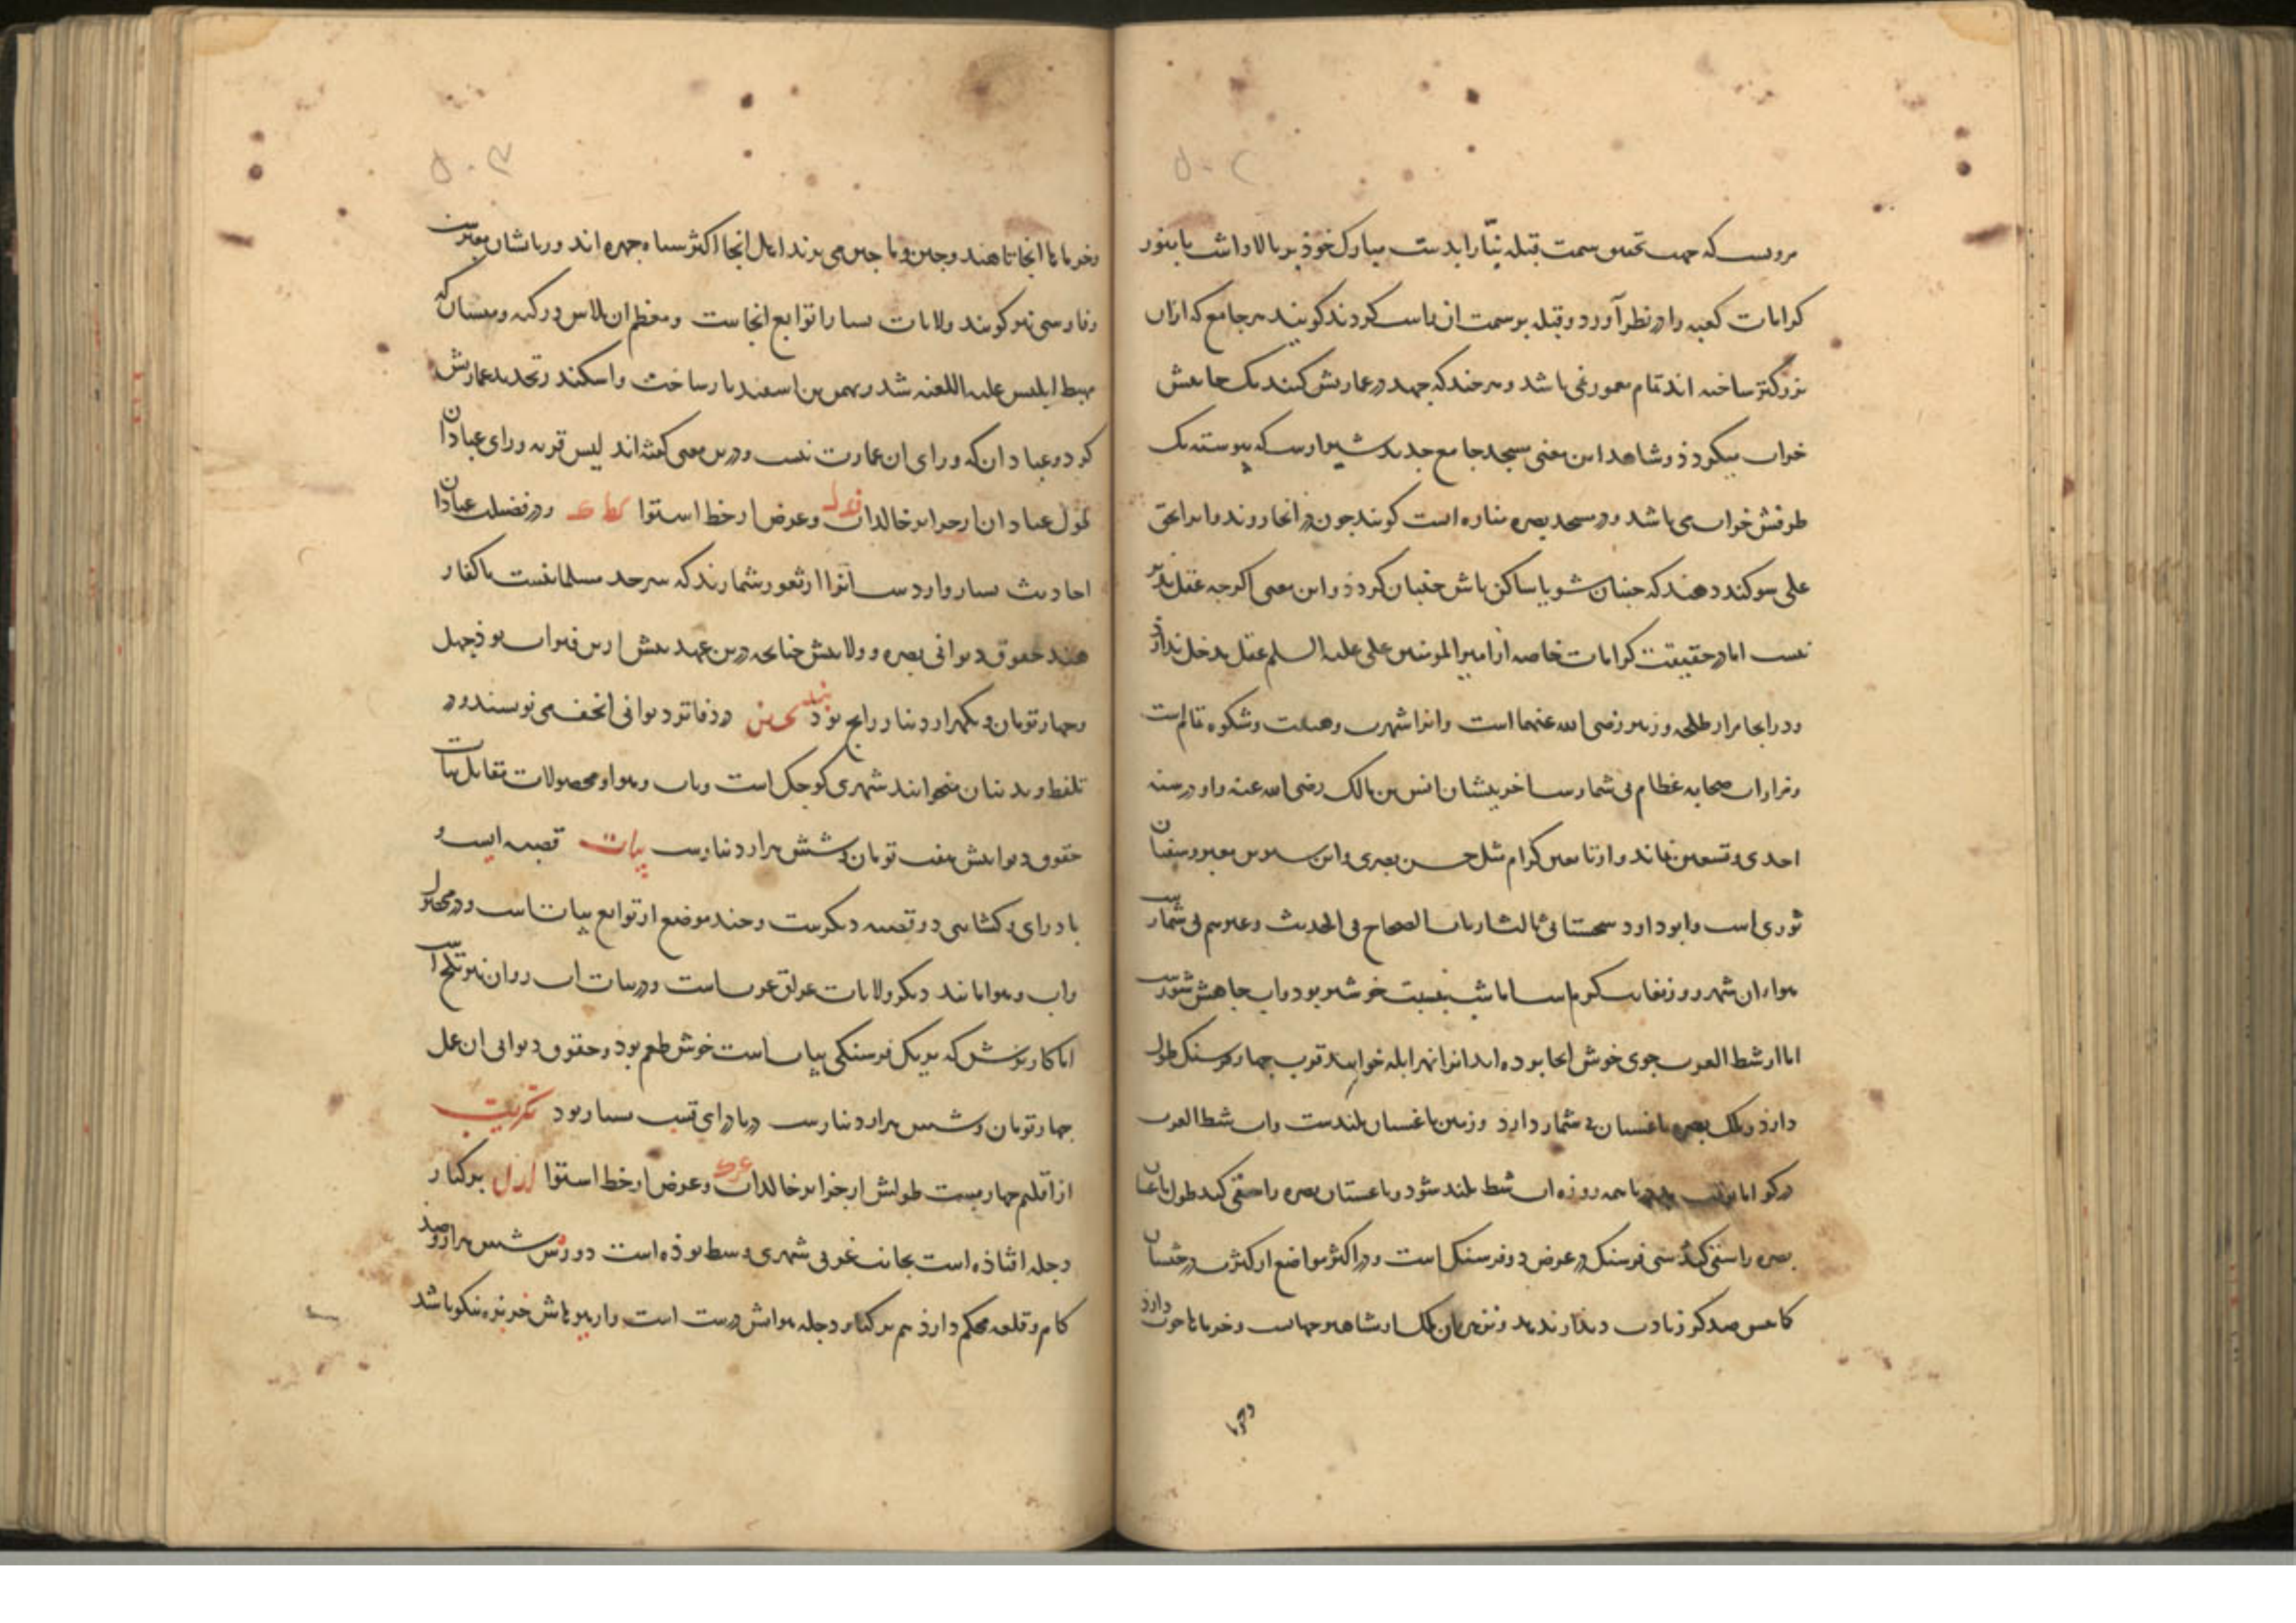 مرویست که جهت تعیین سمت قبله بنّا را بدست مبارک خوذ بر بالا داشت تا بنور
کرامات کعبه را در نظر آورد و قبله بر سمت آن راست کردند کویند هر جامع که ازان
بزرکتر ساخته اند تمام معمور نمی باشد و هر چند که جهد در عمارتش کنند یک جانبش
خراب میکردذ و شاهد این معنی مسجد جامع جدید شیرازست که پیوسته یک
طرفش خراب می باشد و در مسجد بصره مناره است کویند چون در انجا روند و انرا بحق
علی سوکند دهند که جنبان شو یا ساکن باش جنبان کردذ و این معنی اکرچه عقل پذیر
نیست اما در حقیقت کرامات خاصه از امیر المومنین علی علیه السلم عقل مدخل ندارد
و در انجا مزار طلحه و زبیر رضی الله عنهما است و انرا شهرت و هیبت و شکوه تمامست
و مزارات صحابه عظام بی شمارست اخریشان انس بن مالک رضی الله عنه و او در سنه
احدی و تسعین نماند و از تابعین کرام مثل حسن بصری و ابن سیرین معبر و سفیان
ثوری است و ابو داود سجستانی ثالث ارباب الصحاح فی الحدیث و غیرهم بی شمارست
هواء آن شهر روز بغایت کرم است اما شب بنسبت خوشتر بود و آب چاهش شورست
اما از شط العرب جوی خوش انجا برده اند انرا نهر ابله خوانند قرب چهار فرسنک طول
دارد و ملک بصره باغستان بی شمار دارد و زمین باغستان بلندست و آب شط العرب
در کو اما بوقت مد دریا همه روزه آب شط بلند شود و باغستان بصره را سقی کند طول باغستان
بصره راستی کند سی فرسنک در عرض دو فرسنک است و در اکثر مواضع از کثرت درختستان
کما بیش صد کز زیادت دیذار ندهد و نزهت آن ملک از مشاهیر جهانست و خرماها خوب دارد
وخرما
وخرما تا انجا تا هند و چین و ماچین می برند اهل انجا اکثر سیاه چهره اند و زبانشان معربست
و فارسی نیز کویند ولایات بسیار از توابع انجاست و معظم آن بلاس در که و میسان که
مهبط ابلیس علیه اللعنه شد و بهمن بن اسفندیار ساخت و اسکندر تجدید عمارتش
کرد و عبادان که ورای آن عمارت نیست و درین معنی کفته اند لیس قریه ورای عبادان
طول عبادان از جزایر خالدات فدل و عرض از خط استوا کط ک و در فضیلت عبادان
احادیث بسیار واردست انرا از ثغور شمارند که سرحد مسلمانیست با کفار
هند حقوق دیوانی بصره و ولایتش چنانچه درین عهد پیش ازین قرار بوذ چهل
و چهار تومان و یکهزار دینار رایج بود بندنیجین در دفاتر دیوانی انحف می نویسند و در
تلفظ وندنیان میخوانند شهری کوچک است و آب و هوا و محصولات مقابل بیات
حقوق دیوانیش هفت تومان و شش هزار دینارست بیات قصبه ایست و
بادرای و کشاسی دو قصبه دیکرست و چند موضع از توابع بیات است و در محصول
و آب و هوا مانند دیکر ولایات عراق عربست و در بیات آب روان نیز تلخست
اما کاریزش که بر یک فرسنکی بیات است خوش طعم بود و حقوق دیوانی آن عمل
چهار تومان و شش هزار دینارست در بادرای قسب بسیار بود تکریت
از اقلیم چهارمست طولش از جزایر خالدات عح ک و عرض از خط استوا لد ل بر کنار
دجله افتاذه است بجانب غربی شهری وسط بوذه است دورش شش هزار و صد
کام و قلعه محکم دارذ هم بر کنار دجله هوایش درست است و از میوهاش خربزه نیکو باشد